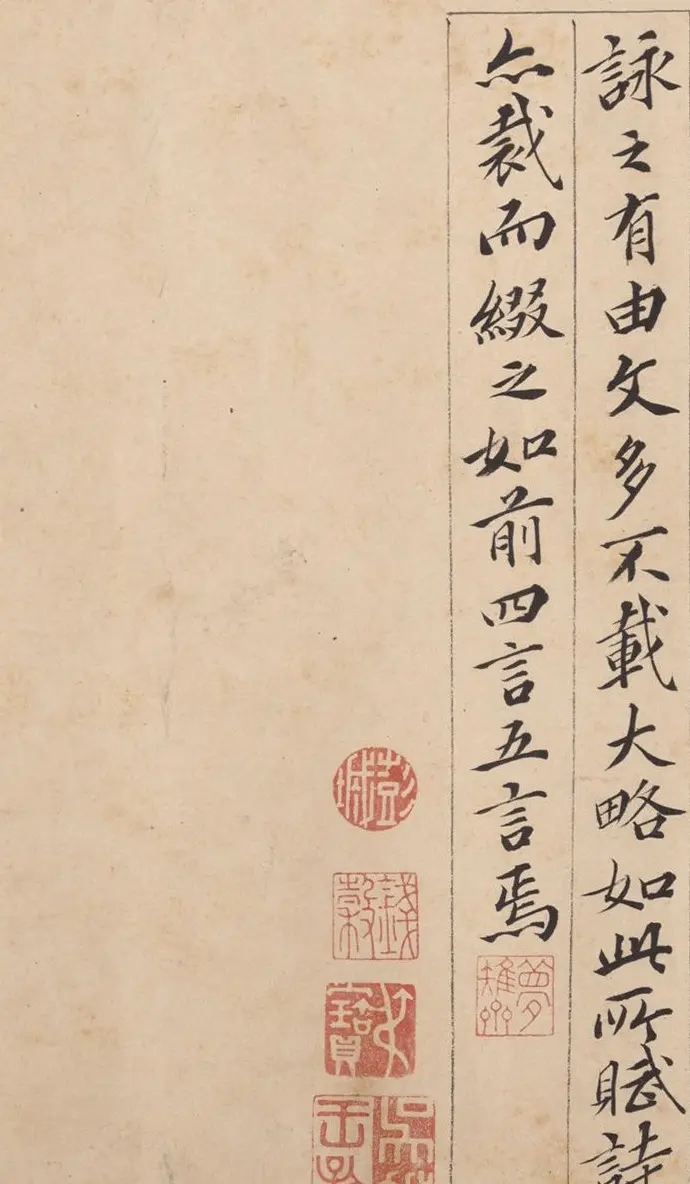 詠之有由文多不載大略如此所賦詩
亦裁而綴之如前四言五言焉
彭城
錢榖
叔寶